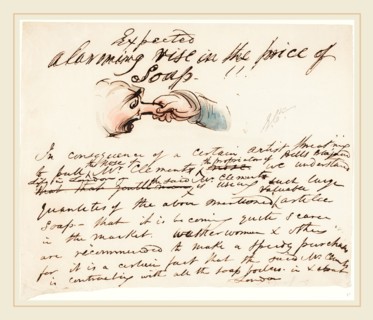 Expected
alarming rise in the price of
Soap - !!!
In consequence of a certain artist threat'ning
to pull Mr Clements the nose the proprietor of Bells
we understand
the said Mr Clements
is using such large
valuable
quantities of the above mentioned article
Soap - that it is becoming quite scarce
in the market washerwomen & others
are recommended to make a speedy purchase
for it is a certain fact that the said Mr Clements
is contracting with all the soap in & about
London